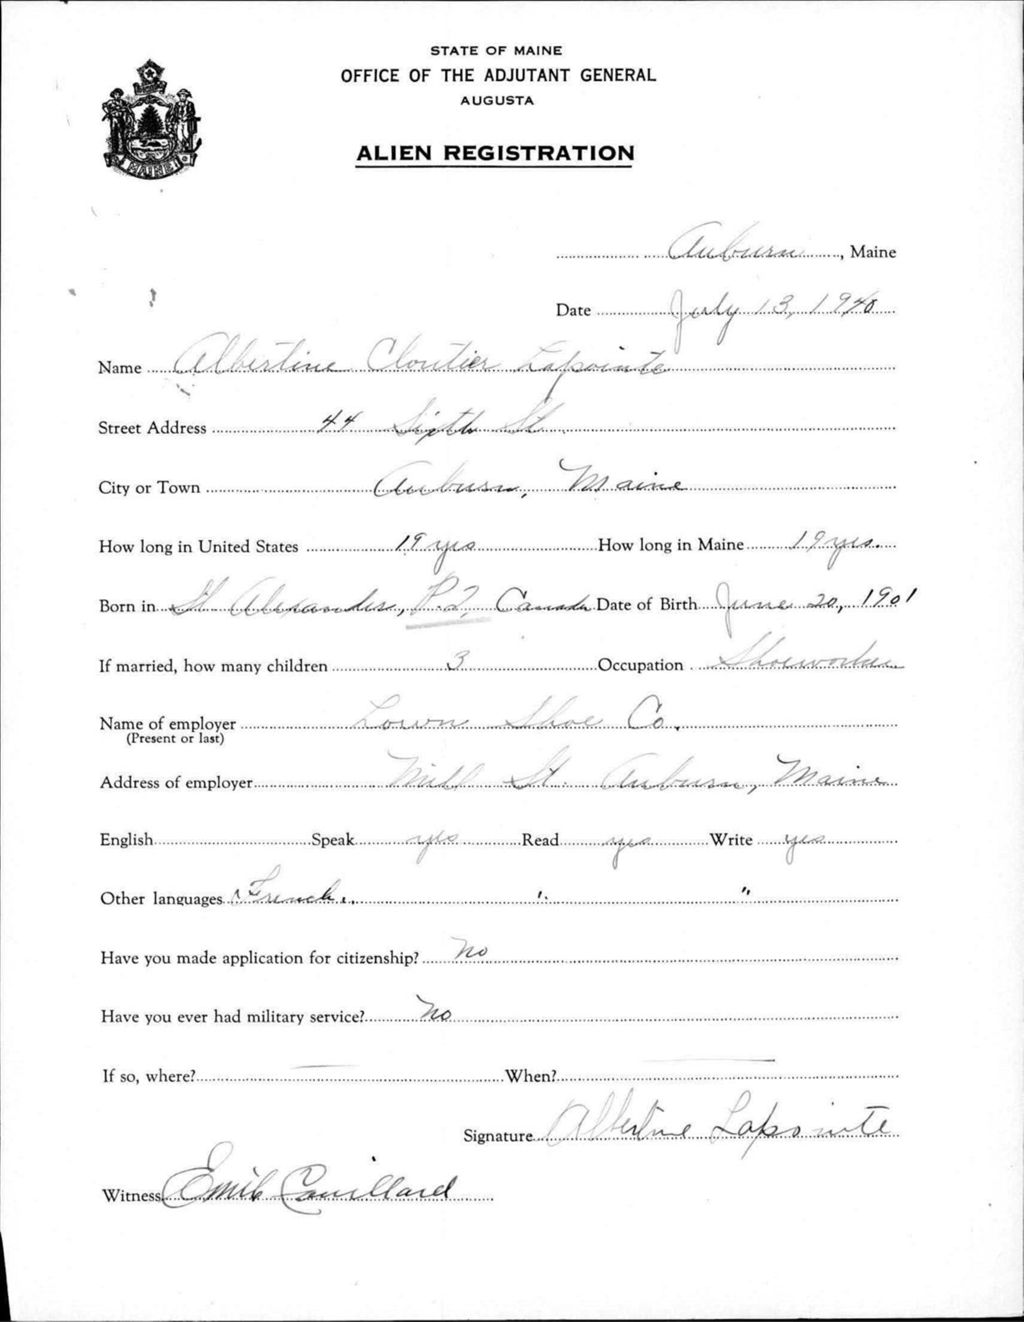 STATE OF MAINE
OFFICE OF THE ADJUTANT GENERAL
AUGUSTA
ALIEN REGISTRATION
MAINE
Auburn, Maine
Date July 13, 1940
Name Albertine Cloutier Lapointe
Street Address 44 Sixth St.
City or Town Auburn, Maine
How long in United States 19 yrs How long in Maine 19 yrs.
Born in St Alexander, P.Q. Canada Date of Birth June 20, 1901
If married, how many children 3 Occupation Shoeworker
Name of employer Lown Shoe Co.
(Present or last)
Address of employer Mill St. Auburn, Maine
English Speak yes Read yes Write yes
Other languages French " " "
Have you made application for citizenship? No
Have you ever had military service? No
If so, where? — When? —
Signature Albertine Lapointe
Witness Emile